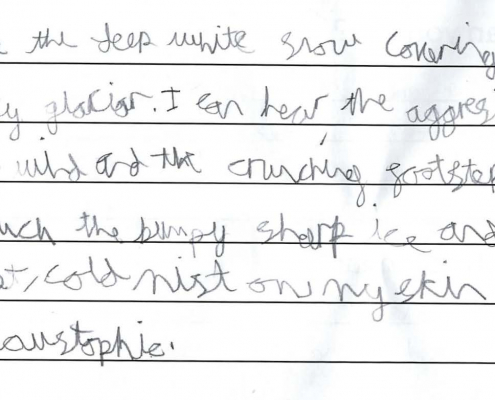 the deep white snow covering
y glacier. I can hear the aggres
wind and the crunching footstep
uch the bumpy sharp ice and
t, cold mist on my skin
austophic.